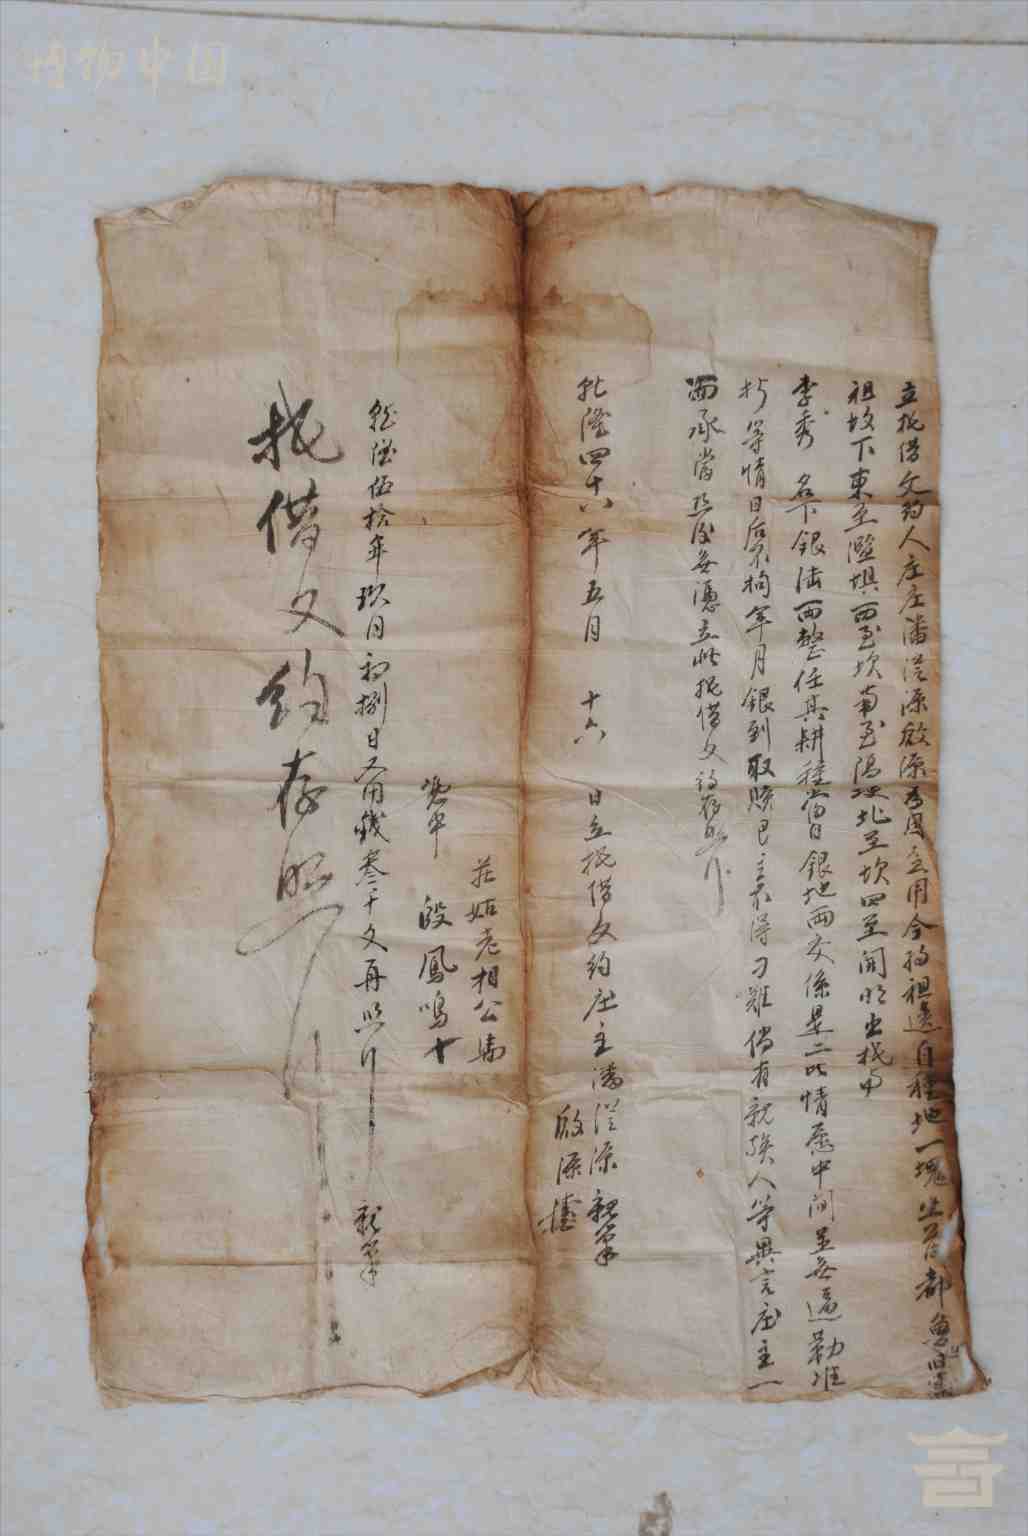 立抵借文約人庄主潘從源啟源為因乏用今將祖遺自種地一塊坐落都
祖坟下東至 西至坎南至 北至坎四至開明出抵與
李秀 名下銀陆両整任其耕種當日銀地両交係是二比情愿中間並無逼勒准
折等情日后不拘年月銀到取贖艮主不得刁難倘有親族人等異言庄主一
面承當恐后無憑立此抵借文約存照
乾隆四十八年五月 十六 日立抵借文約庄主潘從源親筆
啟源
莊姪老相公
憑中 殷鳳鳴十
乾隆伍拾年玖月初捌日又用錢叁千文再照 親筆
抵借文約存照
博物中国